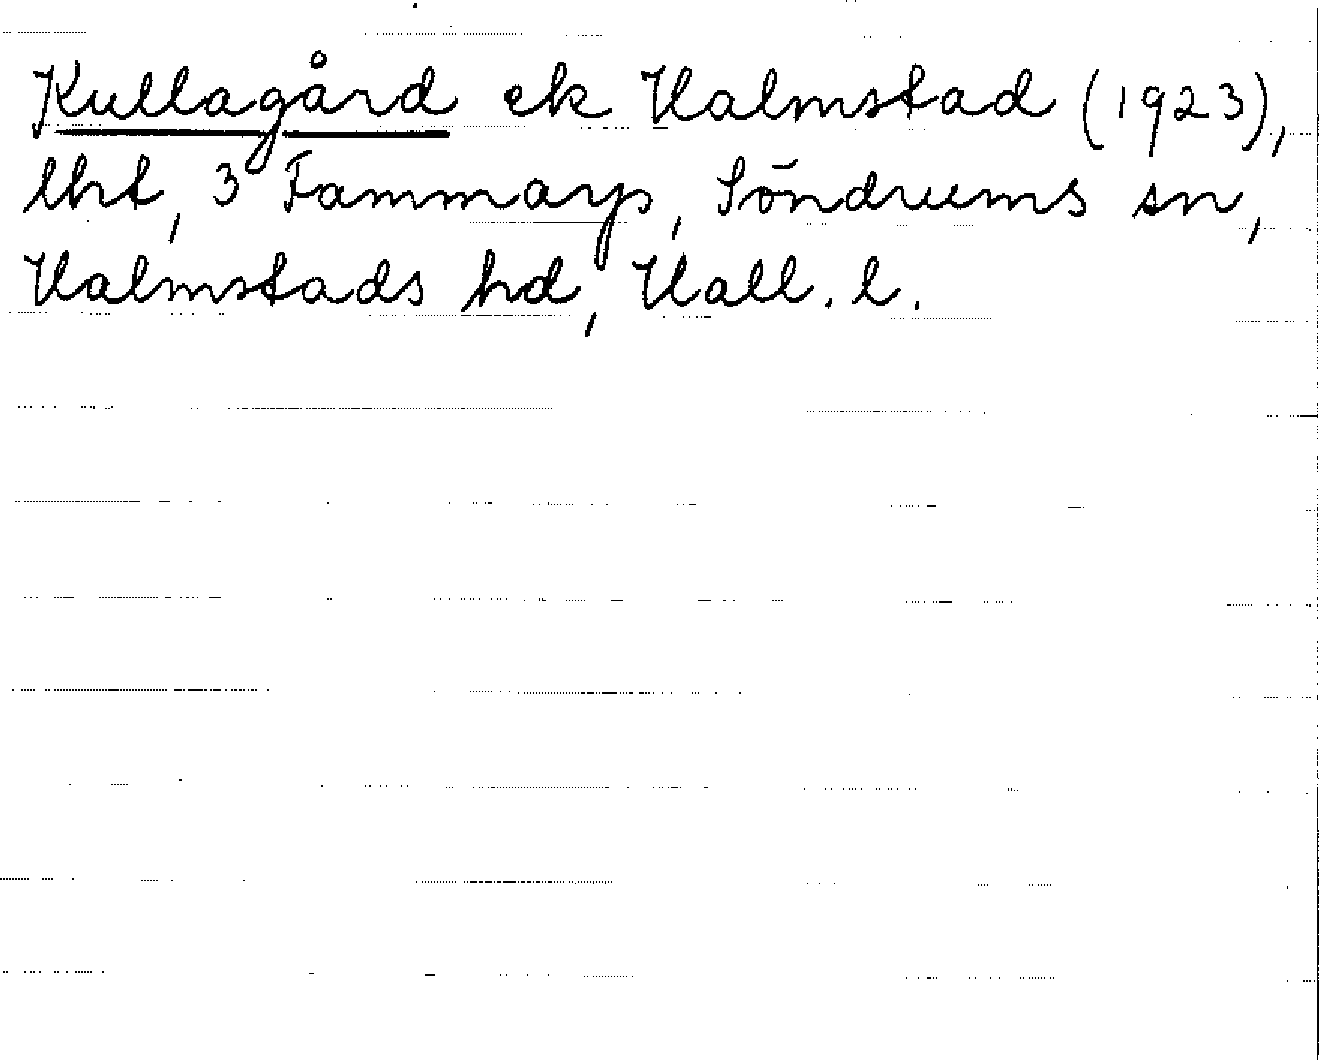 Kullagård ek Halmstad (1923),
lht, 3 Fammarp, Söndrums sn,
Halmstads hd, Hall. l.